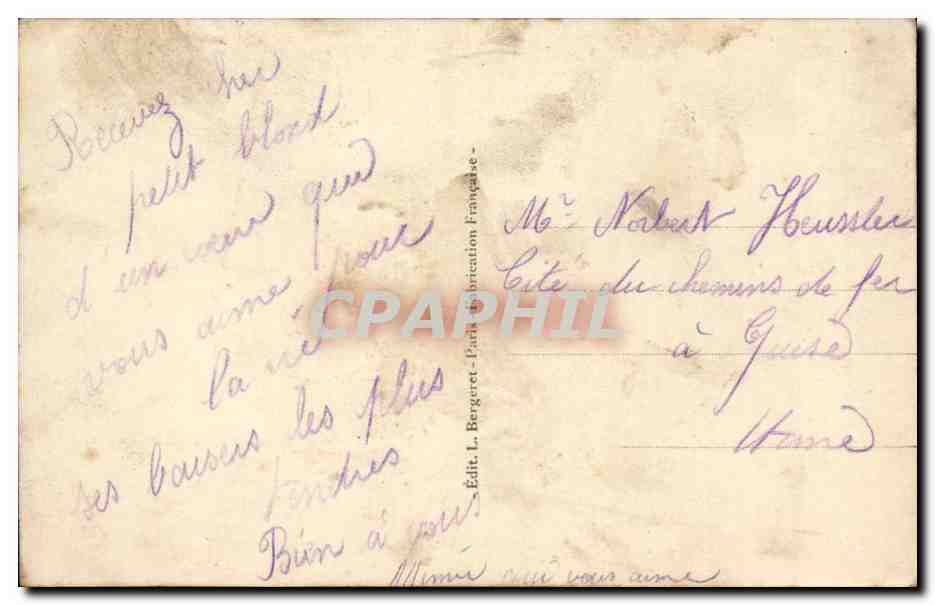 Recevez cher
petit blond
d'un cœur qui
vous aime pour
la vie
ses baisers les plus
tendres
Bien à vous
Mimie qui vous aime
- Édit. L. Bergeret - Paris - Fabrication Française -
Mr Norbert Heussler
Cité du chemins de fer
à Guise
Aisne
CPAPHIL